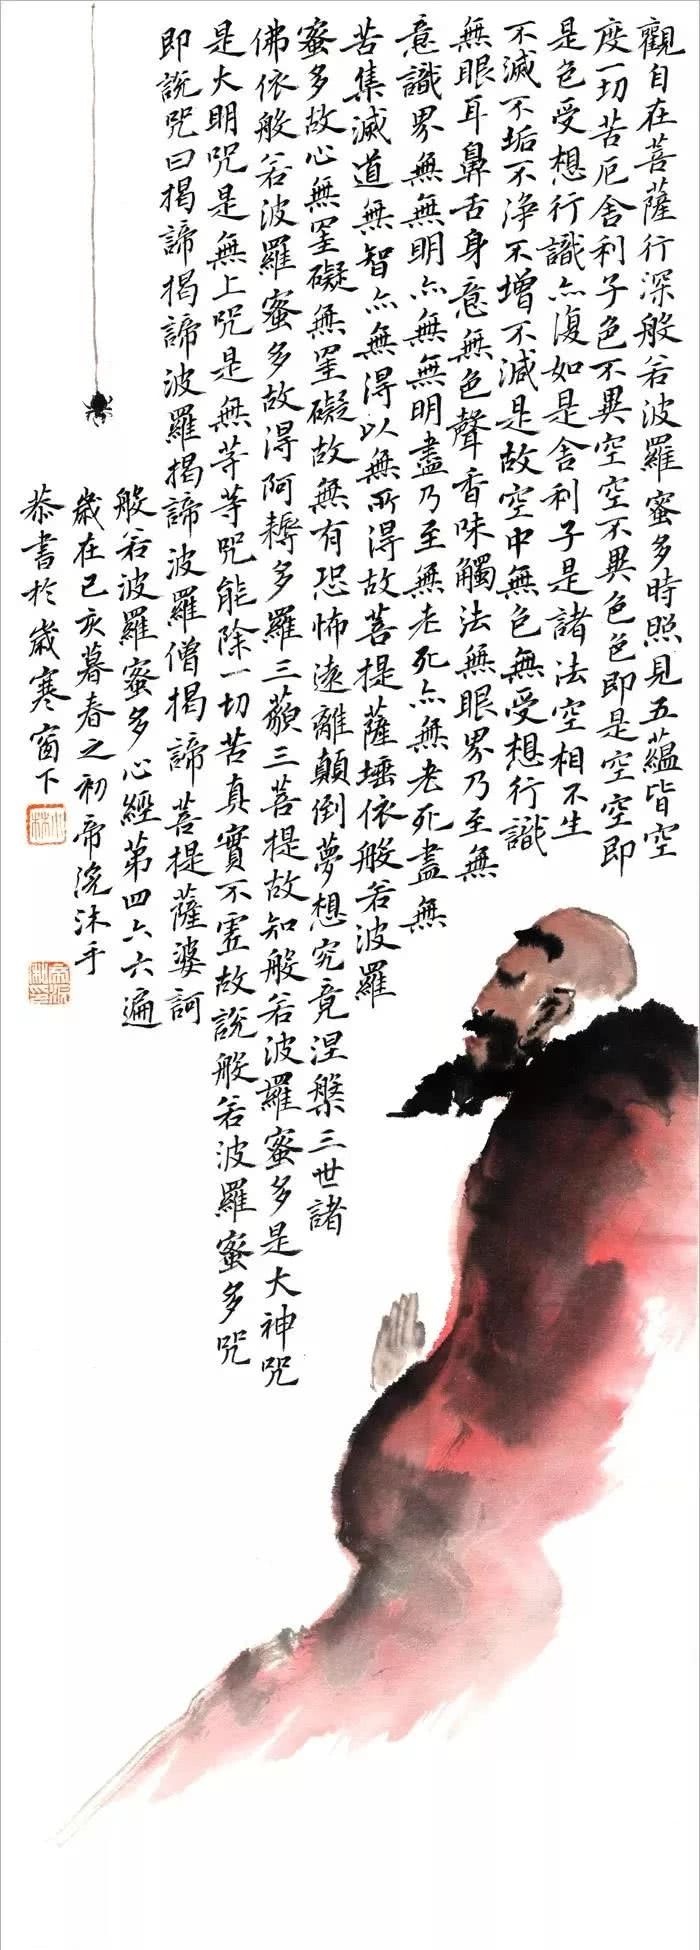 觀自在菩薩行深般若波羅蜜多時照見五蘊皆空
度一切苦厄舍利子色不異空空不異色色即是空空即
是色受想行識亦復如是舍利子是諸法空相不生
不滅不垢不淨不增不減是故空中無色無受想行識
無眼耳鼻舌身意無色聲香味觸法無眼界乃至無
意識界無無明亦無無明盡乃至無老死亦無老死盡無
苦集滅道無智亦無得以無所得故菩提薩埵依般若波羅
蜜多故心無罣礙無罣礙故無有恐怖遠離顛倒夢想究竟涅槃三世諸
佛依般若波羅蜜多故得阿耨多羅三藐三菩提故知般若波羅蜜多是大神咒
是大明咒是無上咒是無等等咒能除一切苦真實不虛故說般若波羅蜜多咒
即說咒曰揭諦揭諦波羅揭諦波羅僧揭諦菩提薩婆訶
般若波羅蜜多心經第四六六遍
歲在己亥暮春之初帝浣沐手
恭書於歲寒窗下